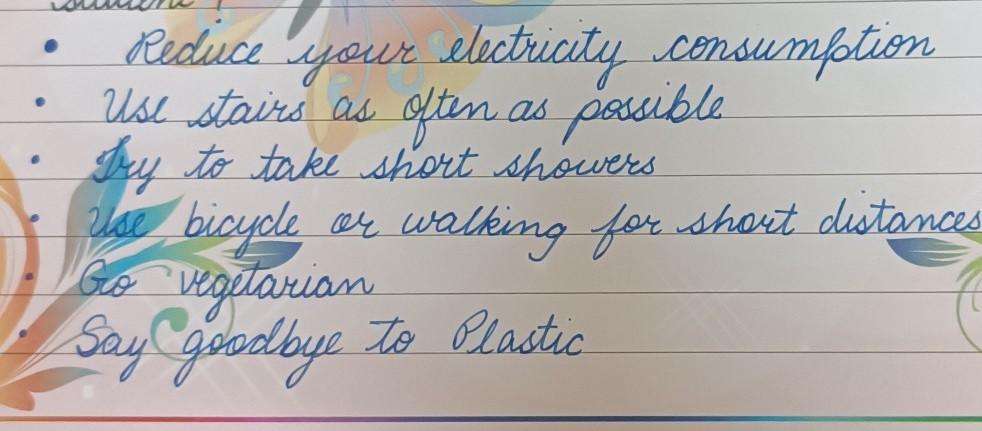 • Reduce your electricity consumption
• Use stairs as often as possible
• Try to take short showers
• Use bicycle or walking for short distances
• Go vegetarian
• Say goodbye to Plastic